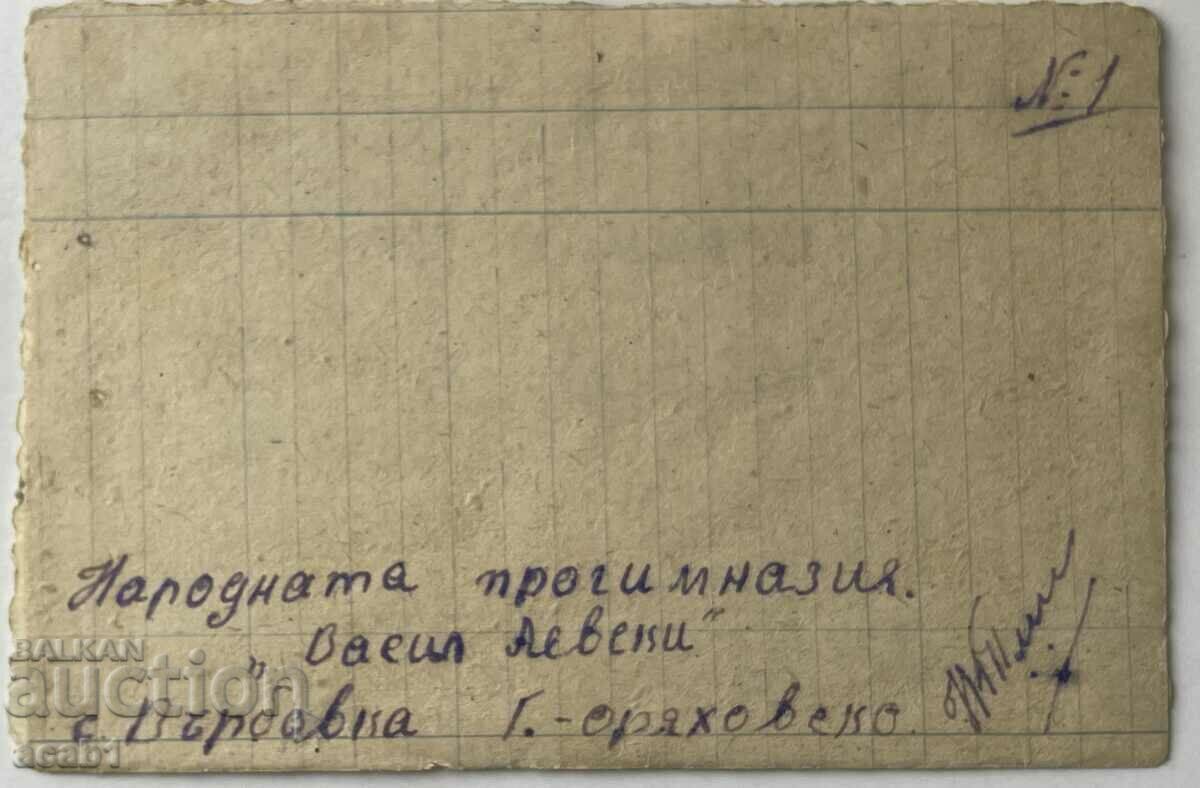 № 1
Народната прогимназия.
„Васил Левски"
с. Върбовка Г.-оряховско.
BALKAN
auction
acab1